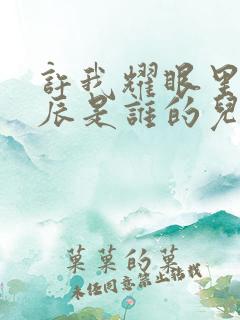 許我耀眼里
辰是誰的兒
菓菓的菓
未经同意禁止转载